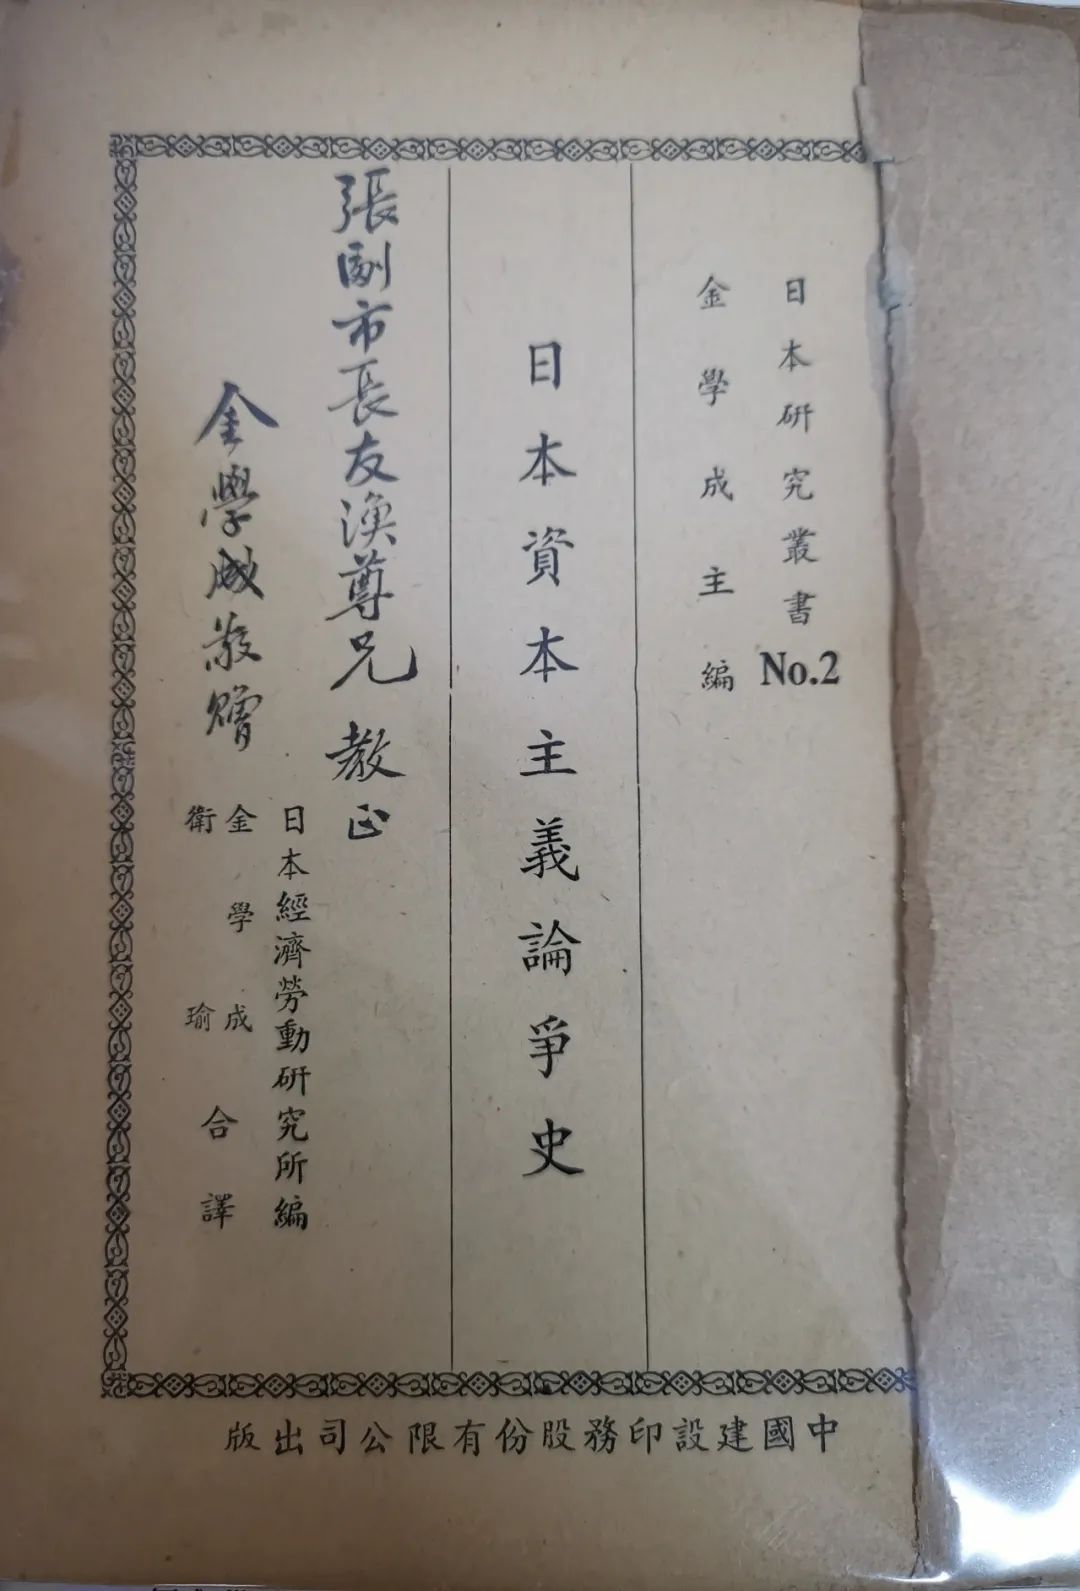 日本研究叢書 No.2
金學成主編
日本資本主義論爭史
張副市長友漁尊兄 教正
金學成敬贈
日本經濟勞動研究所編
金學成
衛瑜
合譯
中國建設印務股份有限公司出版